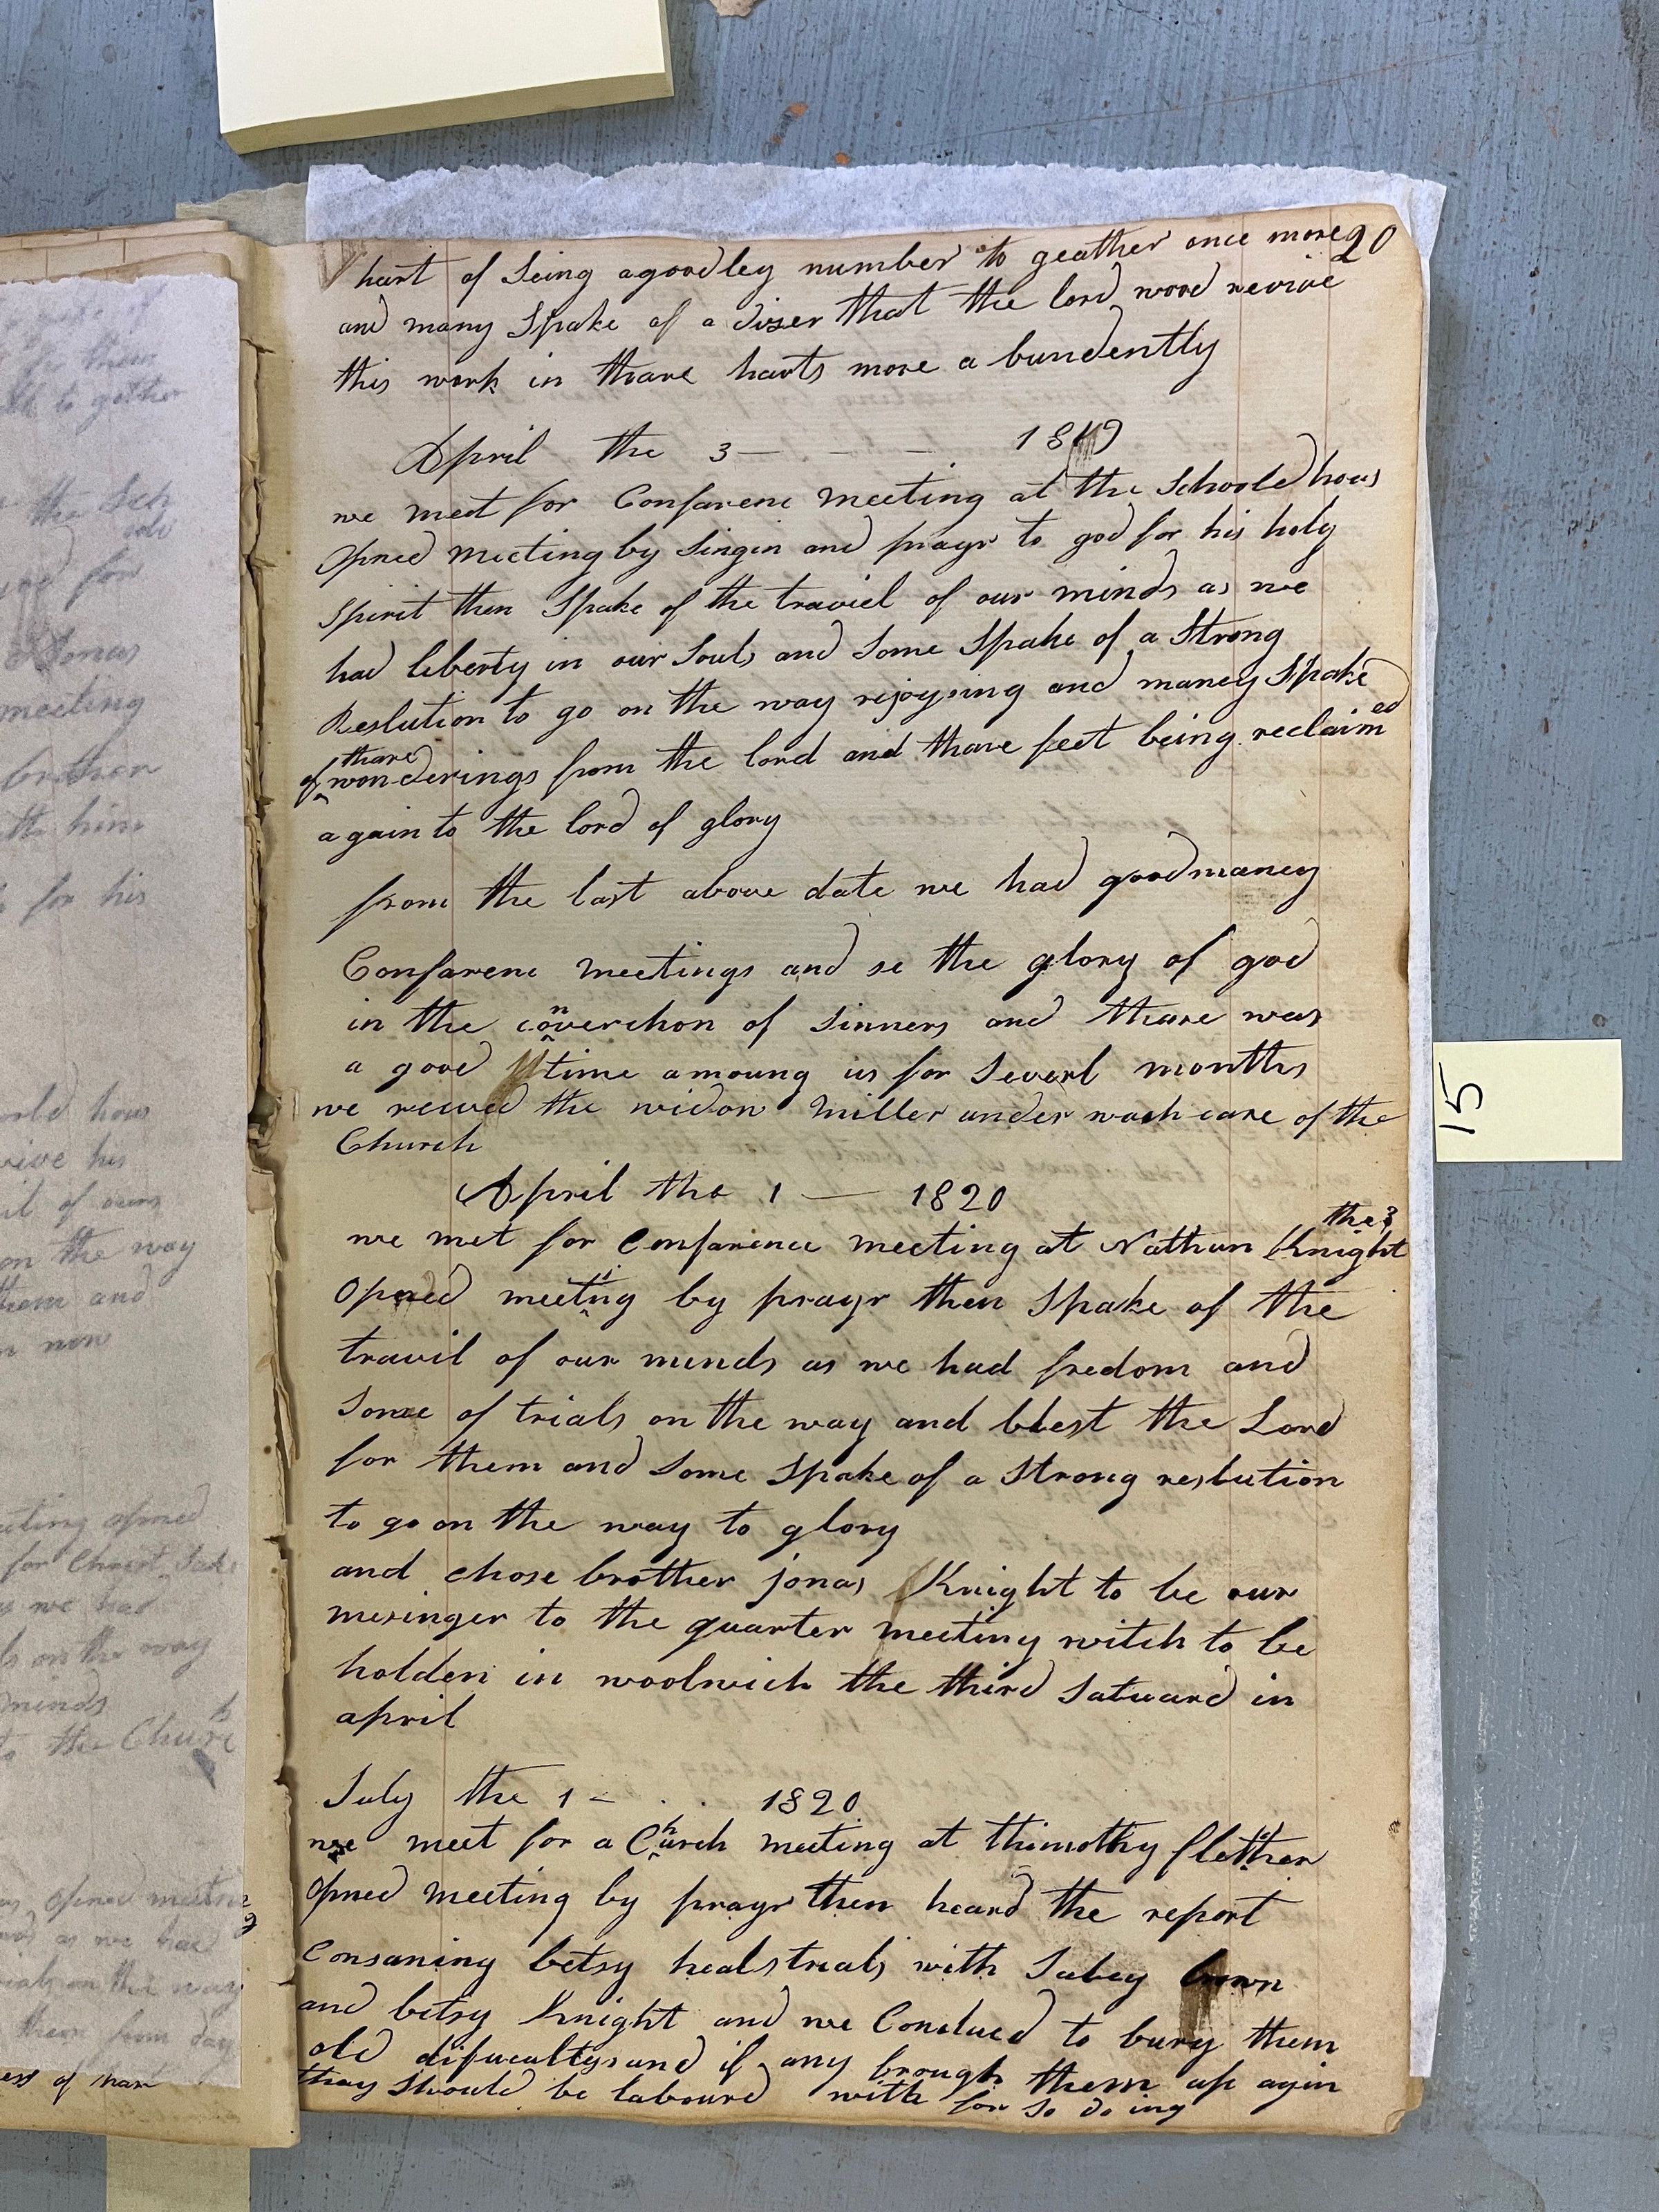 20
hart of Seing agoodley number to geather once more
and many Spake of a dizer that the lord wood revive
this work in thare harts more a bundently
April the 3 — - — 1819
we meet for Confarenc meeting at the Schoole hous
opned meeting by Singin and prayr to god for his holy
spirit then Spake of the traviel of our minds as we
had liberty in our Souls and Some Spake of a Strong
Reslution to go on the way rejoysing and maney Spake
of thare wonderings from the lord and thare feet being reclaimed
again to the lord of glory
from the last above date we had good maney
Confarenc meetings and se the glory of god
in the converchon of sinners and thare was
a good time amoung us for Severl months
we recived the widow Miller under wach care of the
Church
April the 1 — 1820
we met for Conference meeting at Nathan Knight the 3
opned meeting by prayr then Spake of the
travil of our minds as we had fredom and
Some of trials on the way and blest the Lord
for them and Some Spake of a Strong reslution
to go on the way to glory
and chose brother jonas Knight to be our
mesinger to the quarter meeting witch to be
holden in woolwich the third Satuard in
april
July the 1 - . . 1820
we meet for a Church meeting at thimothy flether
opned meeting by prayr then heard the report
Consaning betsy heals trials with Salley brown
and betsy Knight and we Concluced to bury them
old difucaltys and if any brough them up agin
thay Should be labourd with for so do ing
15